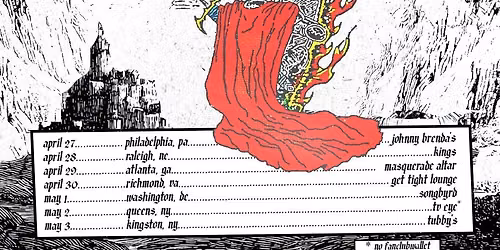 april 27 philadelphia, pa johnny brenda's
april 28 raleigh, nc kings
april 29 atlanta, ga masquerade altar
april 30 richmond, va get tight lounge
may 1 washington, dc songbyrd
may 2 queens, ny tv eye*
may 3 kingston, ny tubby's
* no fanclubwallet